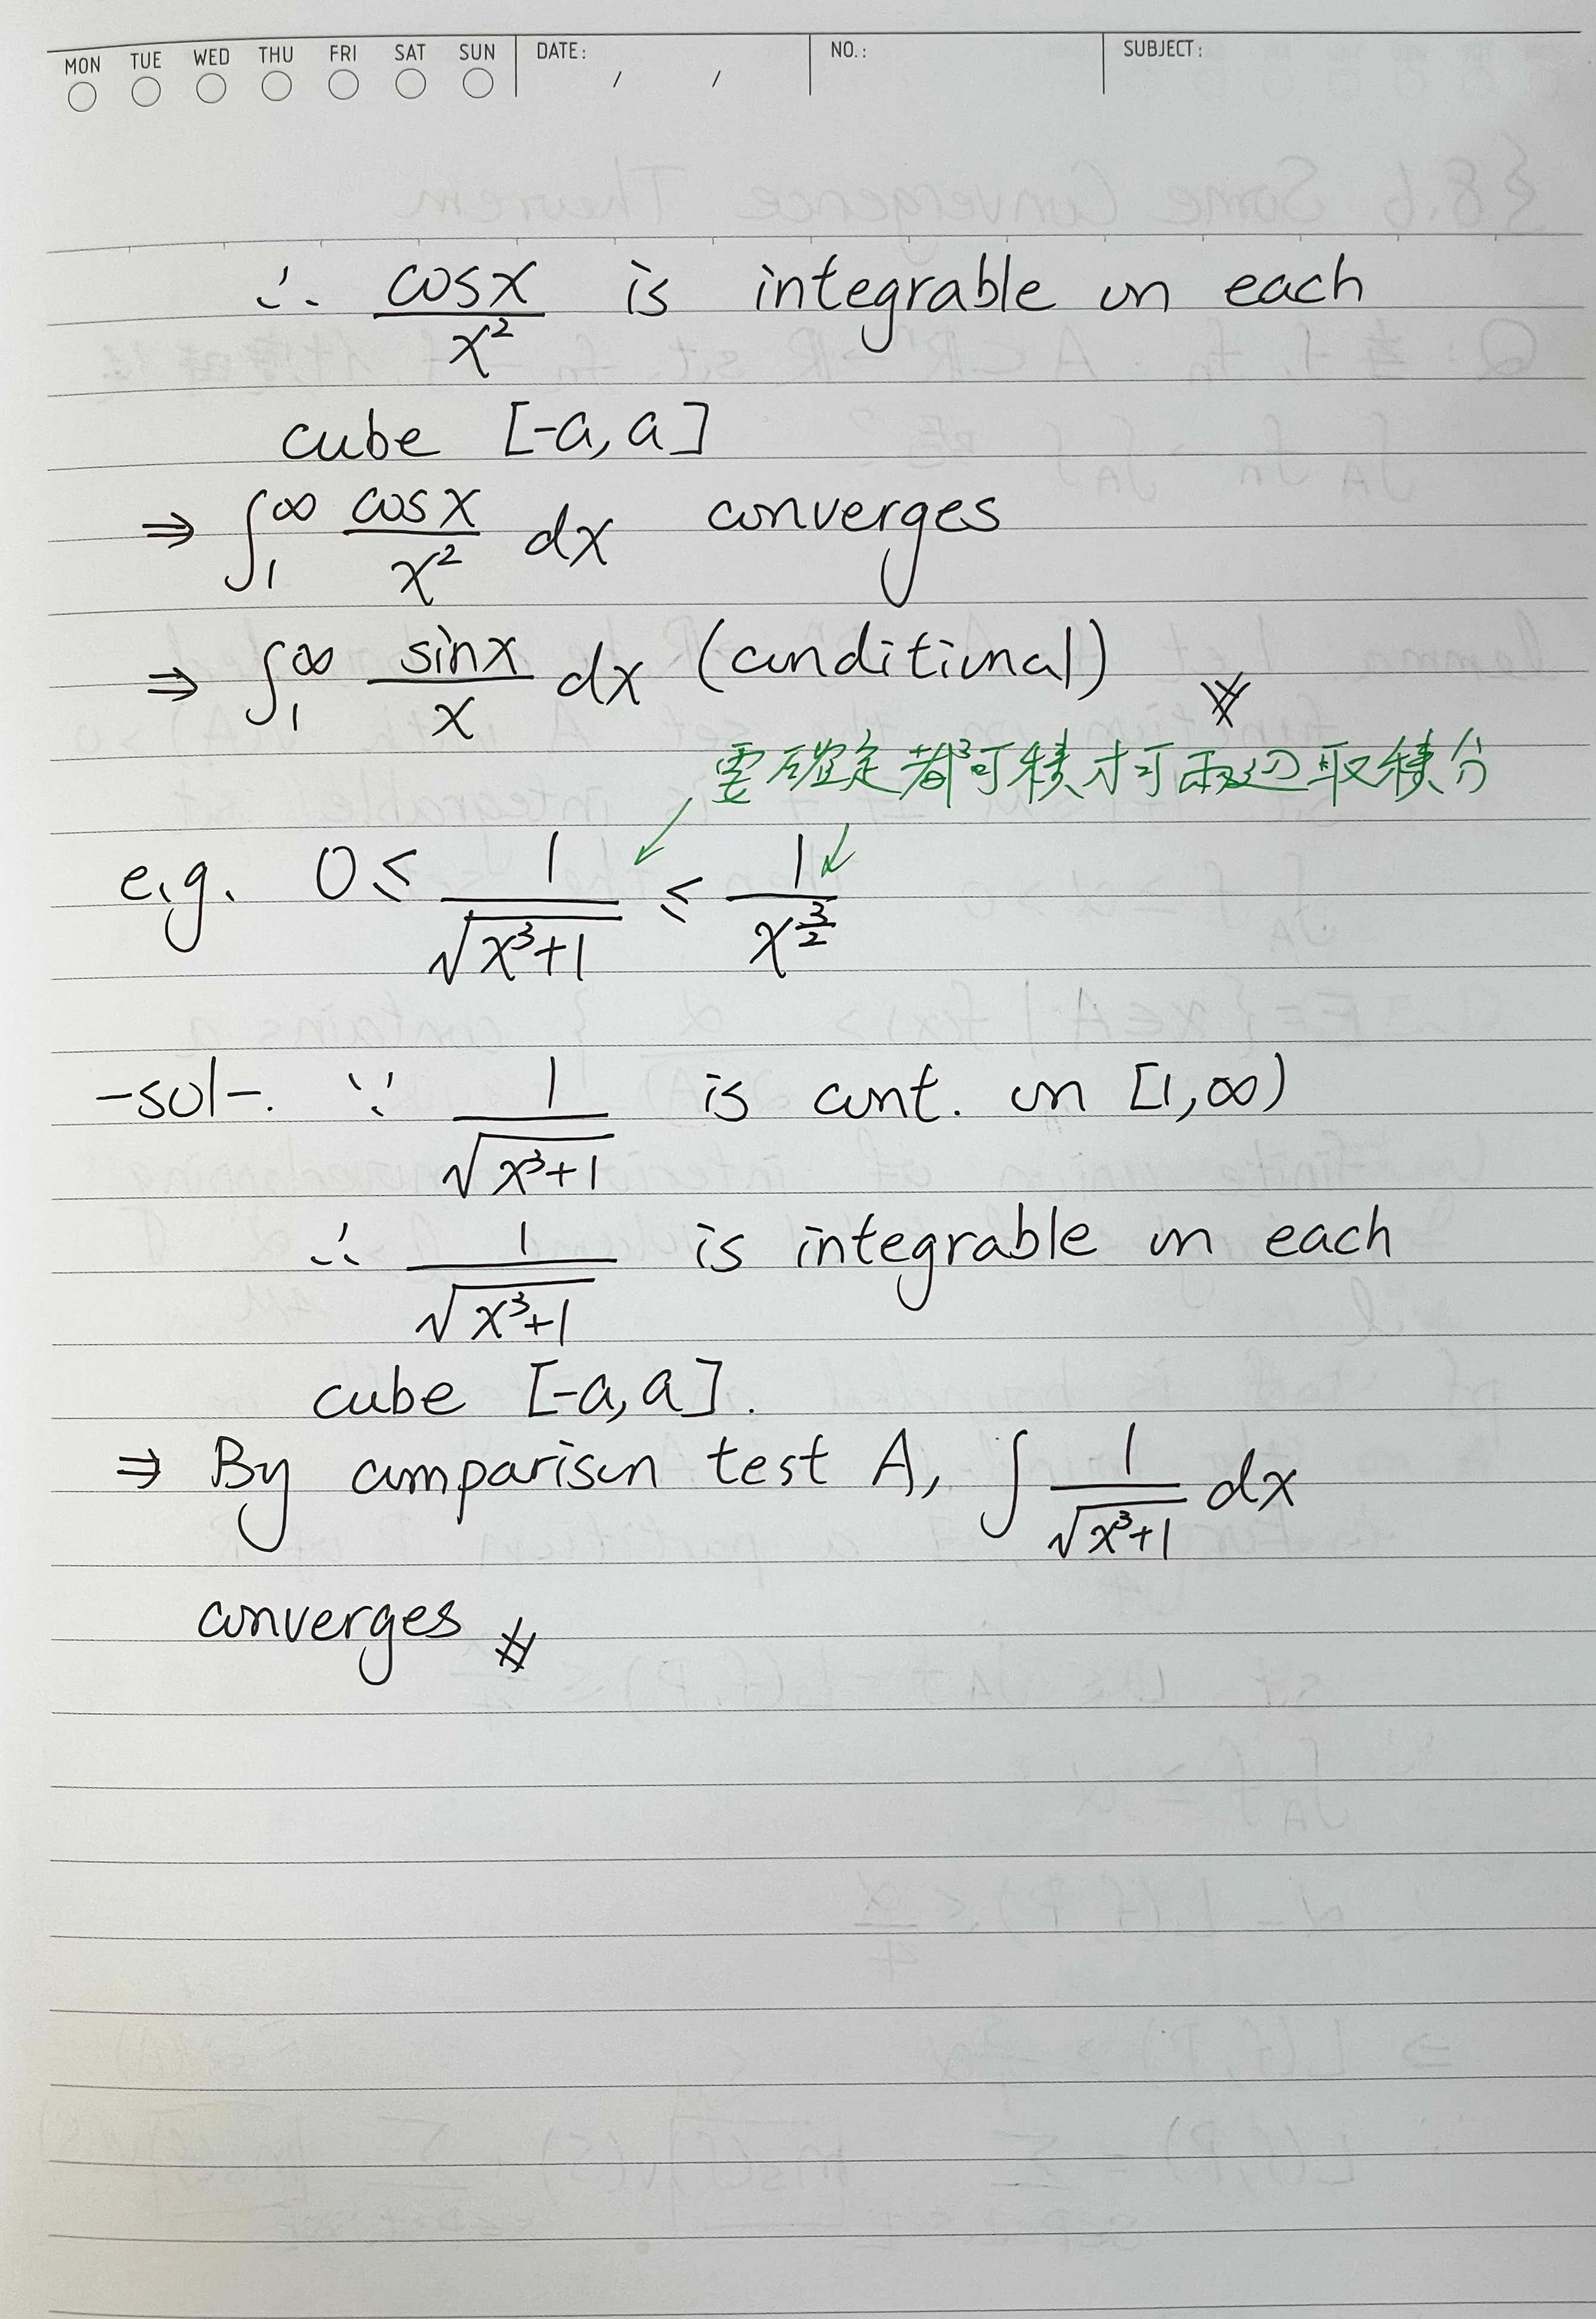 MON TUE WED THU FRI SAT SUN DATE: / / NO.: SUBJECT:
∴ cosx/x² is integrable on each
cube [-a, a]
⇒ ∫₁^∞ cosx/x² dx converges
⇒ ∫₁^∞ sinx/x dx (conditional)
要確定都可積才可兩邊取積分
e.g. 0 ≤ 1/√(x³+1) ≤ 1/x^(3/2)
-sol-. ∵ 1/√(x³+1) is cont. on [1, ∞)
∴ 1/√(x³+1) is integrable on each
cube [-a, a].
⇒ By comparison test A, ∫ 1/√(x³+1) dx
converges #